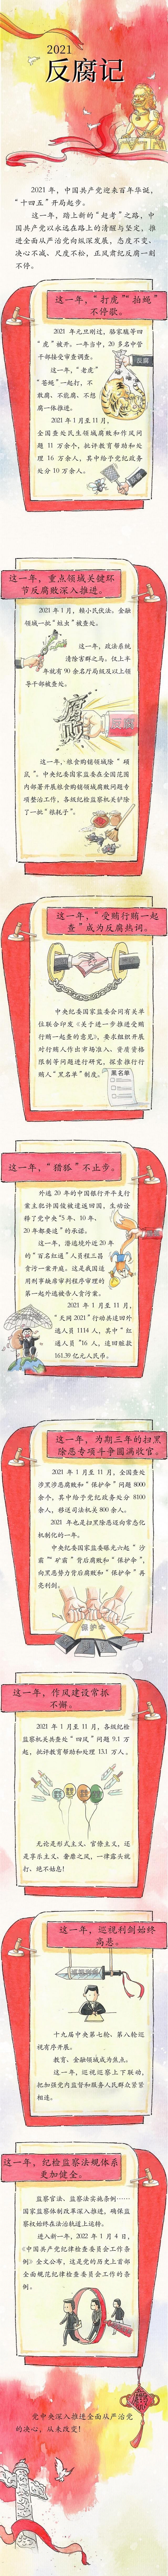 2021
反腐记
2021 年，中国共产党迎来百年华诞，
“十四五”开局起步。
这一年，踏上新的“赶考”之路，中
国共产党以永远在路上的清醒与坚定，推
进全面从严治党向纵深发展，态度不变、
决心不减、尺度不松，正风肃纪反腐一刻
不停。
这一年，“打虎”“拍蝇”
不停歇。
2021 年元旦刚过，骆家駹等四
“虎”被开。一年当中，20 多名中管
干部接受审查调查。
反腐
这一年，“老虎”
“苍蝇”一起打，不
敢腐、不能腐、不想
腐一体推进。
2021 年 1 月至 11 月，
全国查处民生领域腐败和作风问
题 11 万余个，批评教育帮助和处
理 16 万余人，其中给予党纪政务
处分 10 万余人。
这一年，重点领域关键环
节反腐败深入推进。
2021 年 1 月，赖小民伏法。金融
领域一批“蛀虫”被查处。
这一年，政法系统
清除害群之马。仅上半
年就有 90 余名厅局级及以上领
导干部被查处。
腐败
反腐
这一年，粮食购销领域除“硕
鼠”。中央纪委国家监委在全国范围
内部署开展粮食购销领域腐败问题专
项整治工作，各级纪检监察机关铲除
了一批“粮耗子”。
这一年，“受贿行贿一起
查”成为反腐热词。
中央纪委国家监委会同有关单
位联合印发《关于进一步推进受贿
行贿一起查的意见》，要求组织开展
对行贿人作出市场准入、资质资格
限制等问题进行研究，探索推行行
贿人“黑名单”制度。
黑名单
这一年，“猎狐”不止步。
外逃 20 年的中国银行开平支行
案主犯许国俊被遣返回国，生动诠
释了党中央“5 年、10 年、
20 年都要追”的承诺。
这一年，潜逃境外近 20 年
的“百名红通”人员程三昌
贪污一案开庭。这是我国适
用刑事缺席审判程序审理的
第一起外逃被告人贪污案。
2021 年 1 月至 11 月，
“天网 2021”行动共追回外
逃人员 1114 人，其中“红
通人员”16 人，追回赃款
161.39 亿元人民币。
这一年，为期三年的扫黑
除恶专项斗争圆满收官。
2021 年 1 月至 11 月，全国查处
涉黑涉恶腐败和“保护伞”问题 8000
余个，其中给予党纪政务处分 8100
余人，移送司法机关 800 余人。
2021 年也是扫黑除恶迈向常态化
机制化的一年。
中央纪委国家监委曝光六起“沙
霸”“矿霸”背后腐败和“保护伞”，
向黑恶势力背后腐败和“保护伞”再
亮利剑。
保护伞
这一年，作风建设常抓
不懈。
2021 年 1 月至 11 月，各级纪检
监察机关共查处“四风”问题 9.1 万
起，批评教育帮助和处理 13.1 万人。
无论是形式主义、官僚主义，还
是享乐主义、奢靡之风，一律露头就
打、绝不姑息！
这一年，巡视利剑始终
高悬。
十九届中央第七轮、第八轮巡
视有序开展。
教育、金融领域成为焦点。
这一年，巡视巡察上下联动，
把加强党内监督和服务人民群众紧紧
相连。
这一年，纪检监察法规体系
更加健全。
监察官法、监察法实施条例……
国家监察体制改革深入推进，确保监
察执纪始终在法治轨道上运转。
进入新一年，2022 年 1 月 4 日，
《中国共产党纪律检查委员会工作条
例》全文公布，这是党的历史上首部
全面规范纪律检查委员会工作的条
例。
党中央深入推进全面从严治党
的决心，从未改变！